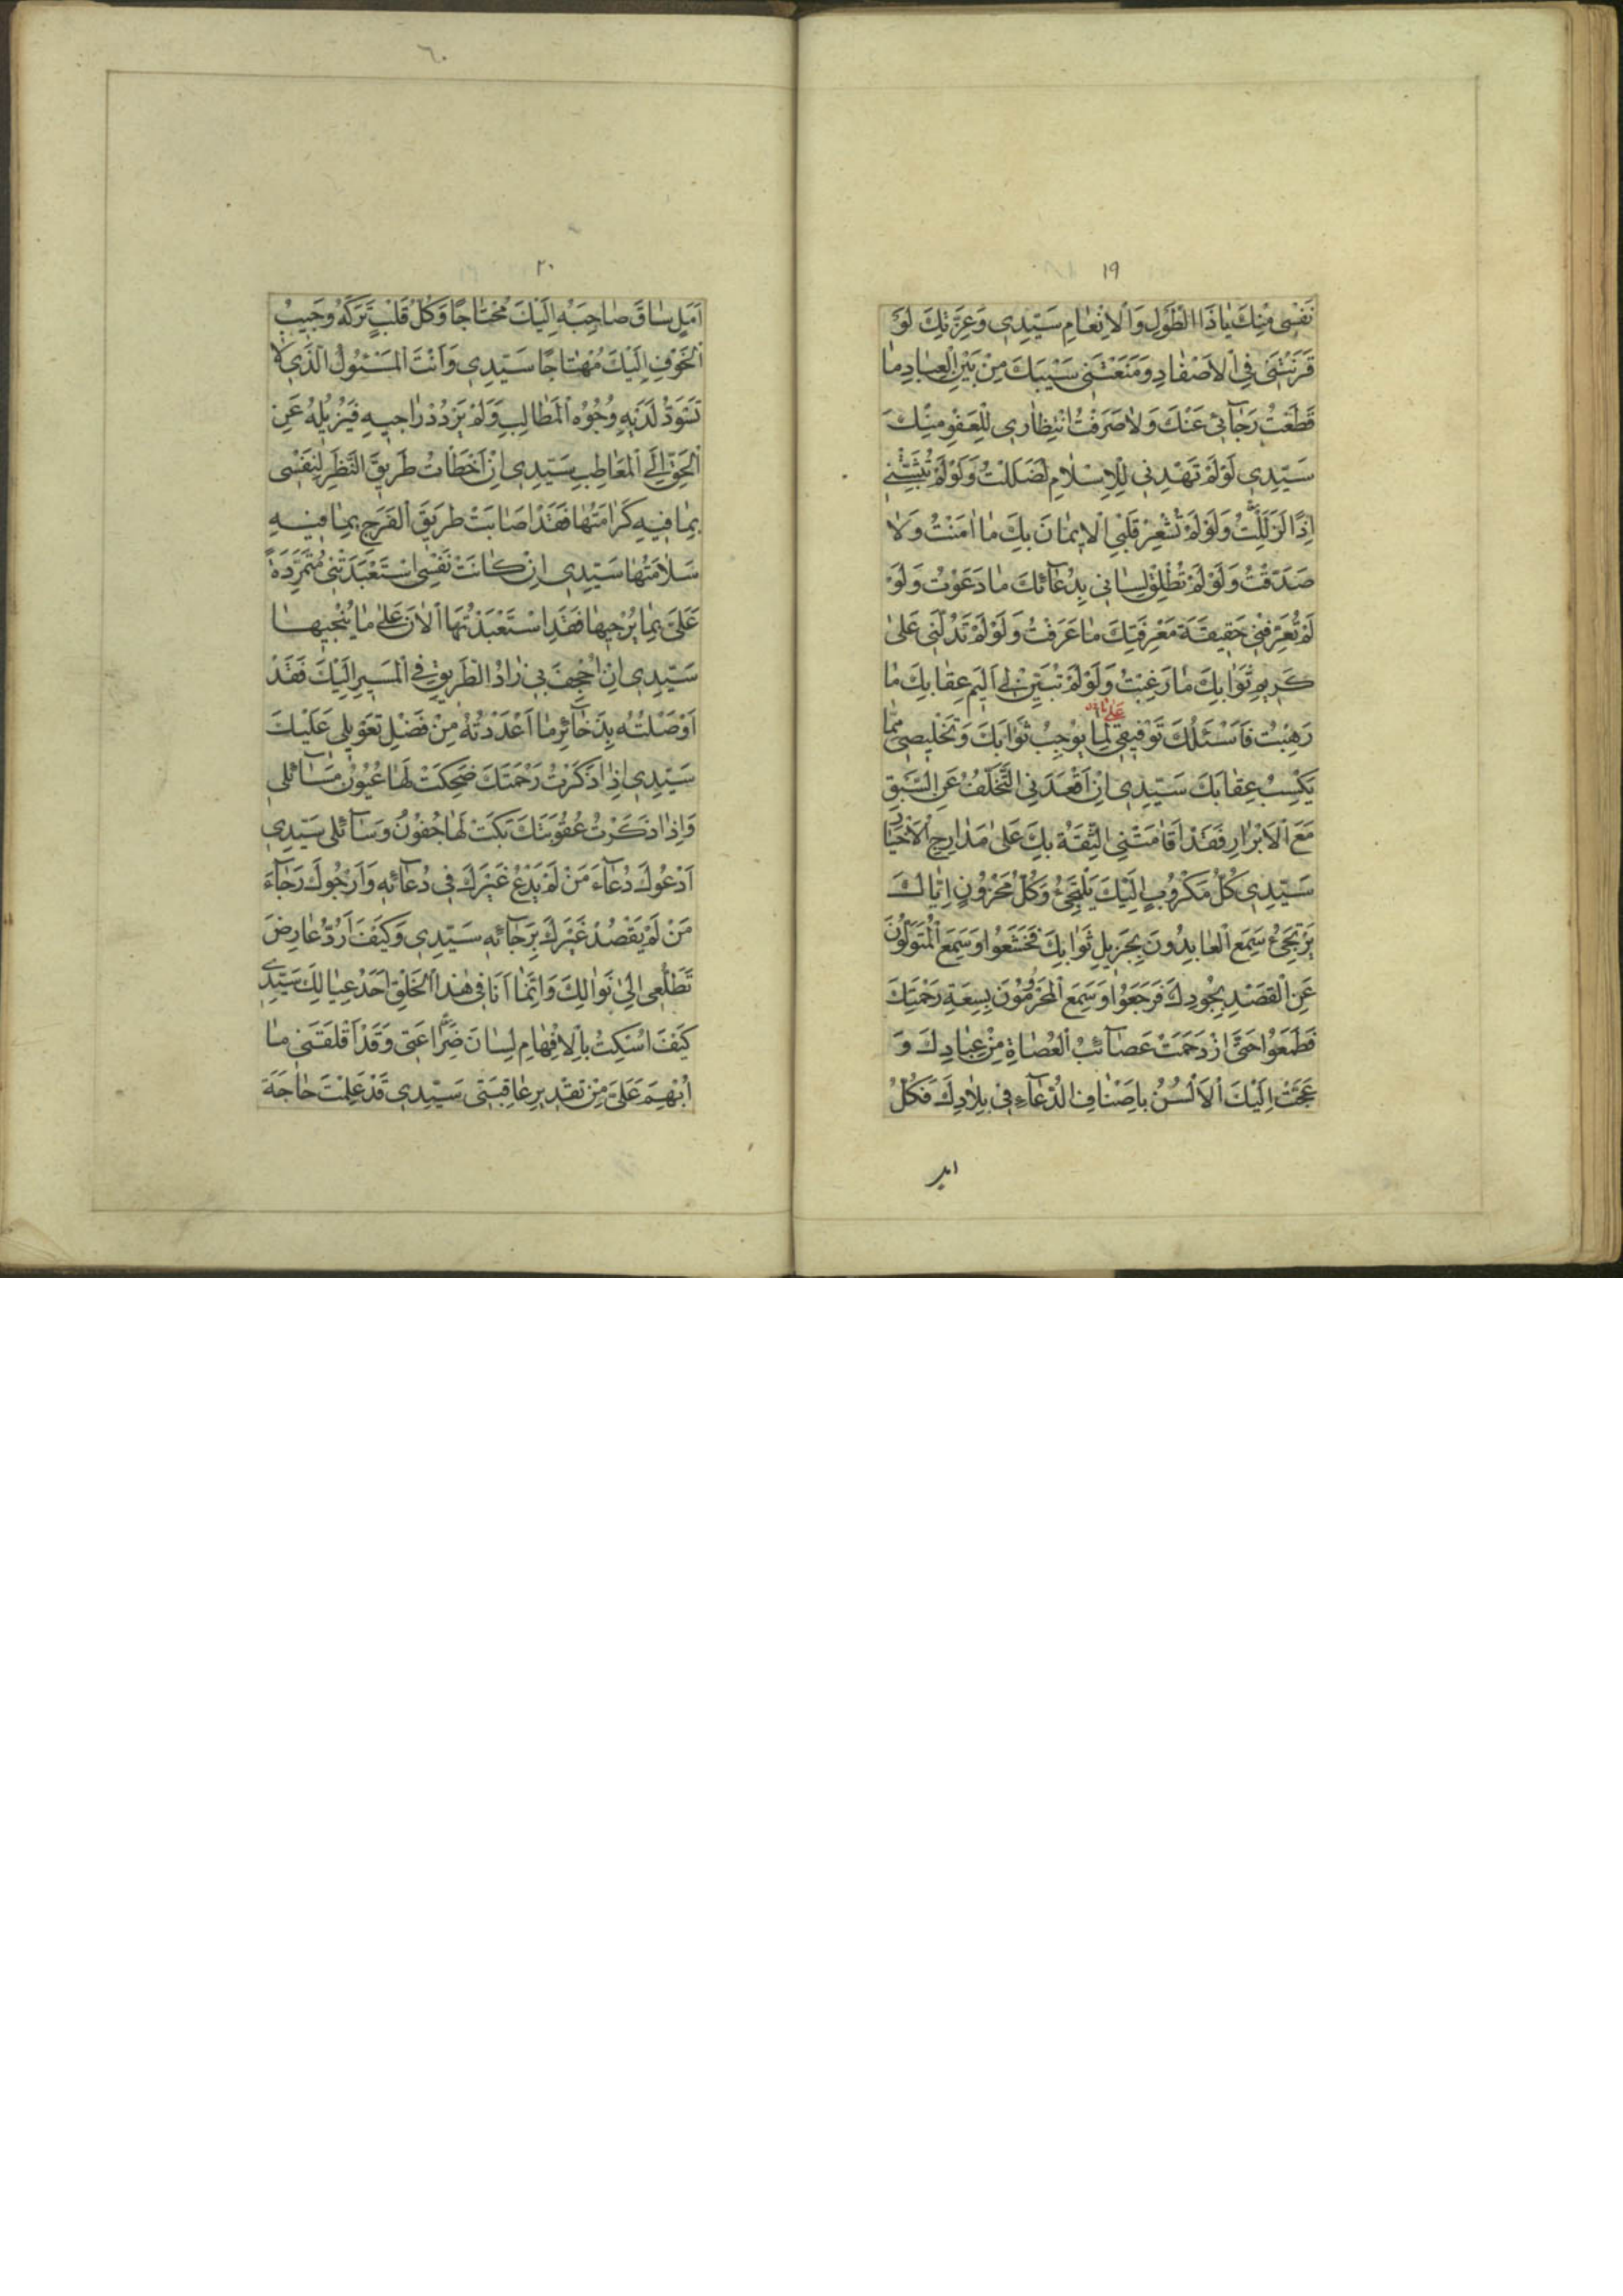 ١٩
نَفْسِى مِنْكَ يَا ذَا الطَّوْلِ وَالْاِنْعَامِ سَيِّدِى وَعِزَّتِكَ لَوْ
قَرَنْتَنِى فِى الْاَصْفَادِ وَمَنَعْتَنِى سَيْبَكَ مِنْ بَيْنِ الْعِبَادِ مَا
قَطَعْتُ رَجَآئِى عَنْكَ وَلَا صَرَفْتُ انْتِظَارِى لِلْعَفْوِ مِنْكَ
سَيِّدِى لَوْ لَمْ تَهْدِنِى لِلْاِسْلَامِ لَضَلَلْتُ وَلَوْ لَمْ تُثَبِّتْنِى
اِذًا لَزَلَلْتُ وَلَوْ لَمْ تُشْعِرْ قَلْبِى الْاِيمَانَ بِكَ مَا اٰمَنْتُ وَلَا
صَدَّقْتُ وَلَوْ لَمْ تُطْلِقْ لِسَانِى بِدُعَآئِكَ مَا دَعَوْتُ وَلَوْ
لَمْ تُعَرِّفْنِى حَقِيقَةَ مَعْرِفَتِكَ مَا عَرَفْتُ وَلَوْ لَمْ تَدُلَّنِى عَلٰى
كَرِيمِ ثَوَابِكَ مَا رَغِبْتُ وَلَوْ لَمْ تُبَيِّنْ لِى اَلِيمَ عِقَابِكَ مَا
رَهِبْتُ فَاَسْئَلُكَ تَوْفِيقِى لِمَا يُوجِبُ ثَوَابَكَ وَتَخْلِيصِى مِمَّا
يَكْسِبُ عِقَابَكَ سَيِّدِى اِنْ اَقْعَدَنِى التَّخَلُّفُ عَنِ السَّبْقِ
مَعَ الْاَبْرَارِ فَقَدْ اَقَامَتْنِى الثِّقَةُ بِكَ عَلٰى مَدَارِجِ الْاَخْيَارِ
سَيِّدِى كُلُّ مَكْرُوبٍ اِلَيْكَ يَلْتَجِئُ وَكُلُّ مَحْزُونٍ اِيَّاكَ
يَرْتَجِىُٔ سَمِعَ الْعَابِدُونَ بِجَزِيلِ ثَوَابِكَ فَخَشَعُوا وَسَمِعَ الْمُتَوَلُّونَ
عَنِ الْقَصْدِ بِجُودِكَ فَرَجَعُوا وَسَمِعَ الْمَحْرُومُونَ بِسِعَةِ رَحْمَتِكَ
فَطَمَعُوا حَتّٰى ازْدَحَمَتْ عَصَآئِبُ الْعُصَاةِ مِنْ عِبَادِكَ وَ
عَجَّتْ اِلَيْكَ الْاَلْسُنُ بِاَصْنَافِ الدُّعَآءِ فِى بِلَادِكَ فَكُلُّ
٦٠
٢٠
اَمَلٍ سَاقَ صَاحِبَهُ اِلَيْكَ مُحْتَاجًا وَكُلُّ قَلْبٍ تَرَكَهُ وَجِيبُ
الْخَوْفِ اِلَيْكَ مُهْتَاجًا سَيِّدِى وَاَنْتَ الْمَسْئُولُ الَّذِى لَا
تَسْوَدُّ لَدَيْهِ وُجُوهُ الْمَطَالِبِ وَلَمْ يَرْدُدْ رَاجِيهِ فَيُزِيلُهُ عَنِ
الْحَقِّ اِلَى الْمَعَاطِبِ سَيِّدِى اِنْ اَخْطَاْتُ طَرِيقَ النَّظَرِ لِنَفْسِى
بِمَا فِيهِ كَرَامَتُهَا فَقَدْ اَصَابَتْ طَرِيقَ الْفَرَجِ بِمَا فِيهِ
سَلَامَتُهَا سَيِّدِى اِنْ كَانَتْ نَفْسِى اسْتَعْبَدَتْنِى مُتَمَرِّدَةً
عَلَىَّ بِمَا يُرْجِيهَا فَقَدِ اسْتَعْبَدْتُهَا الْاٰنَ عَلٰى مَا يُنْجِيهَا
سَيِّدِى اِنْ اَجْحَفَ بِى زَادُ الطَّرِيقِ فِى الْمَسِيرِ اِلَيْكَ فَقَدْ
اَوْصَلْتُهُ بِذَخَآئِرِ مَا اَعْدَدْتُهُ مِنْ فَضْلِ تَعْوِيلِى عَلَيْكَ
سَيِّدِى اِذَا ذَكَرْتُ رَحْمَتَكَ ضَحِكَتْ لَهَا عُيُونُ مَسَآئِلِى
وَاِذَا ذَكَرْتُ عُقُوبَتَكَ بَكَتْ لَهَا جُفُونُ وَسَآئِلِى سَيِّدِى
اَدْعُوكَ دُعَآءَ مَنْ لَمْ يَدْعُ غَيْرَكَ فِى دُعَآئِهِ وَاَرْجُوكَ رَجَآءَ
مَنْ لَمْ يَقْصُدْ غَيْرَكَ بِرَجَآئِهِ سَيِّدِى وَكَيْفَ اَرُدُّ عَارِضَ
تَطَلُّعِى اِلٰى نَوَالِكَ وَاِنَّمَا اَنَا فِى هٰذَا الْخَلْقِ اَحَدُ عِيَالِكَ سَيِّدِى
كَيْفَ اُسْكِتُ بِالْاِفْهَامِ لِسَانَ ضَرَاعَتِى وَقَدْ اَقْلَقَنِى مَا
اُبْهِمَ عَلَىَّ مِنْ تَقْدِيرِ عَاقِبَتِى سَيِّدِى قَدْ عَلِمْتَ حَاجَةَ